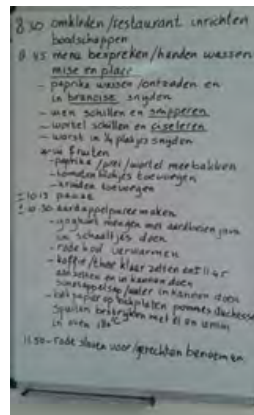 8 30 omkleden /restaurant inrichten
boodschappen
8 45 menu bespreken/handen wassen
mise en place
- paprika wassen /ontzaden en
in brunoise snyden
- uien schillen en snipperen
- wortel schillen en ciseleren
- worst in plakjes snyden
fruiten
- paprika /prei/wortel meebakken
- tomatenblokjes toevoegen
- kruiden toevoegen
± 10 15 pauze
± 10 30 aardappelpuree maken
- yoghurt mengen met aardbeien
in schaaltjes doen
- rode kool verwarmen
- koffie/thee klaar zetten
en in kannen doen
sinaasappelsap/water in kannen doen
- bakpapier op bakplaten pommes duchesse
spuiten bestryken met ei en
in oven 180°C
11.50 - rode slaven voor/gerechten benoemen